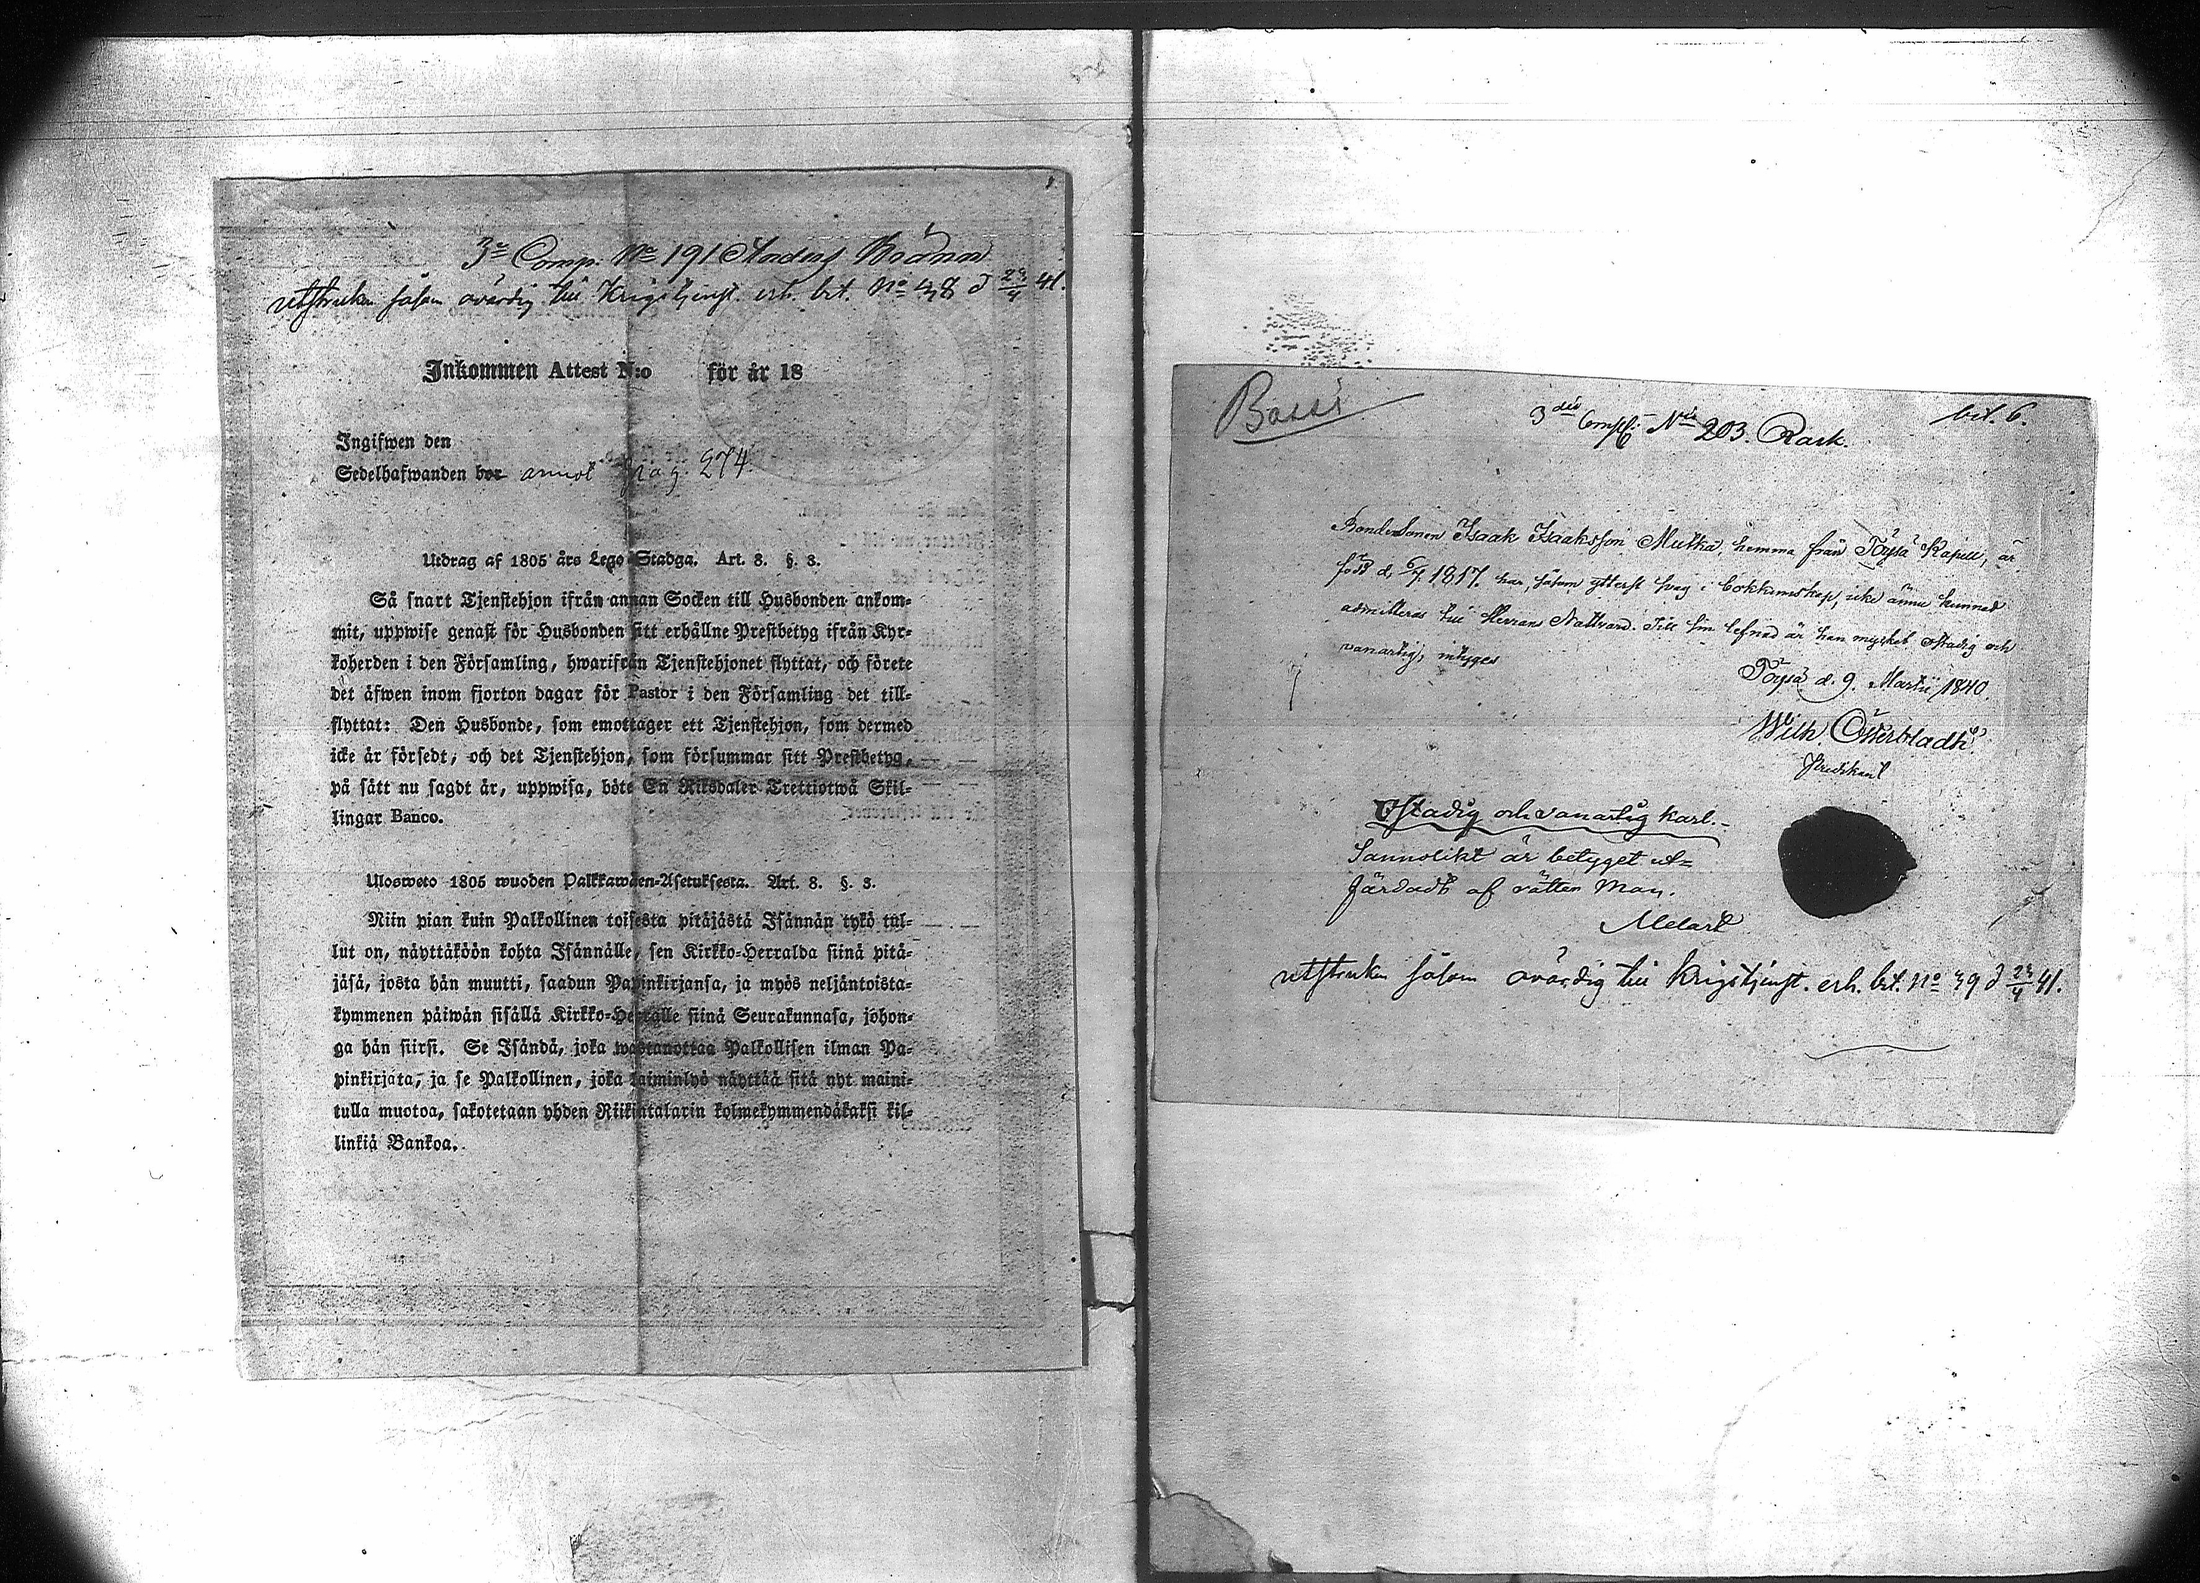 3e Comp. No 191 Anders Brännar
utstruken såsom ovärdig till Krigstjenst. erh. bet. No 38 d 23/4 41.
Inkommen Attest N:o för år 18
Ingifwen den
Sedelhafwanden bor annot pag. 274.
Utdrag af 1805 års Lego-Stadga. Art. 3. §. 3.
Så snart Tjenstehjon ifrån annan Socken till Husbonden ankom-
mit, uppwise genast för Husbonden sitt erhållne Prestbetyg ifrån Kyr-
koherden i den Församling, hwarifrån Tjenstehjonet flyttat, och förete
det äfwen inom fjorton dagar för Pastor i den Församling det till-
flyttat: Den Husbonde, som emottager ett Tjenstehjon, som dermed
icke är försedt, och det Tjenstehjon, som försummar sitt Prestbetyg,
på sätt nu sagdt är, uppwisa, böte En Riksdaler Trettiotwå Skil-
lingar Banco.
Ulosweto 1805 wuoden Palkkawäen-Asetuksesta. Art. 3. §. 3.
Niin pian kuin Palkollinen toisesta pitäjästä Isännän tykö tul-
lut on, näyttäköön kohta Isännälle, sen Kirkko-Herralda siinä pitä-
jäsä, josta hän muutti, saadun Papinkirjansa, ja myös neljäntoista-
kymmenen päiwän sisällä Kirkko-Herralle siinä Seurakunnasa, johon-
ga hän siirsi. Se Isändä, joka wastanottaa Palkollisen ilman Pa-
pinkirjata, ja se Palkollinen, joka laiminlyö näyttää sitä nyt maini-
tulla muotoa, sakotetaan yhden Riikintalarin kolmekymmendäkaksi kil-
linkiä Bankoa.
3die Comp. No 203. Rask.
bet. 6.
Bondesonen Isaak Isaaksson Mutka, hemma från Töysä Kapell, är
född d. 6/7 1817. har, såsom ytterst svag i bokkunskap, icke ännu kunnat
admitteras till Herrans Nattvard. Till sin lefnad är han mycket ostadig och
vanartig, intygas
Töysä d. 9. Martii 1840.
Wilh Österbladh
Predikant
Ostadig och vanartig karl.
Sannolikt är betyget ut-
färdadt af rätter Man.
Melart
utstruken såsom ovärdig till krigstjenst. erh. bet. No 39 d 23/4 41.